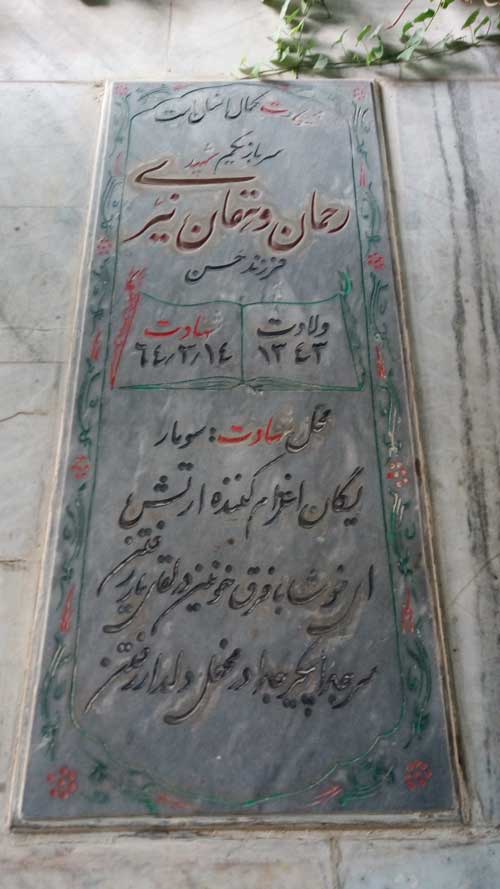 شهادت کمال انسان است
سرباز یکم شهید
رحمان دهقان نیری
فرزند حسن
ولادت شهادت
۱۳۴۳ ۶۴/۳/۱۴
محل شهادت: سومار
یگان اعزام کننده ارتش
ای خوشا با فرق خونین در لقای یار رفتن
سر جدا پیکر جدا در محفل دلدار رفتن